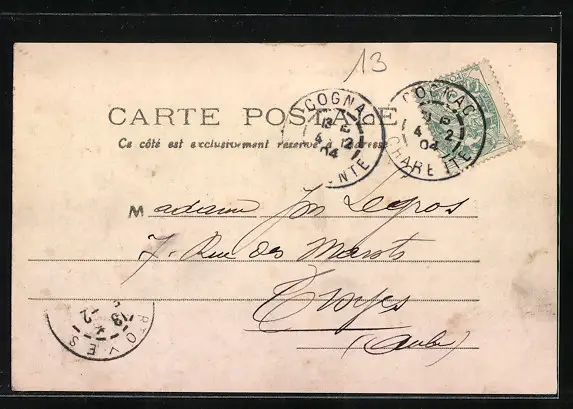 13
CARTE POSTALE
Ce côté est exclusivement réservé à l'adresse
COGNAC
13 E
4 2
04
CHARENTE
COGNAC
13 E
4 2
04
CHARENTE
Madame Legros
7. Rue des
Troyes
(Aube)
TROYES
13 2